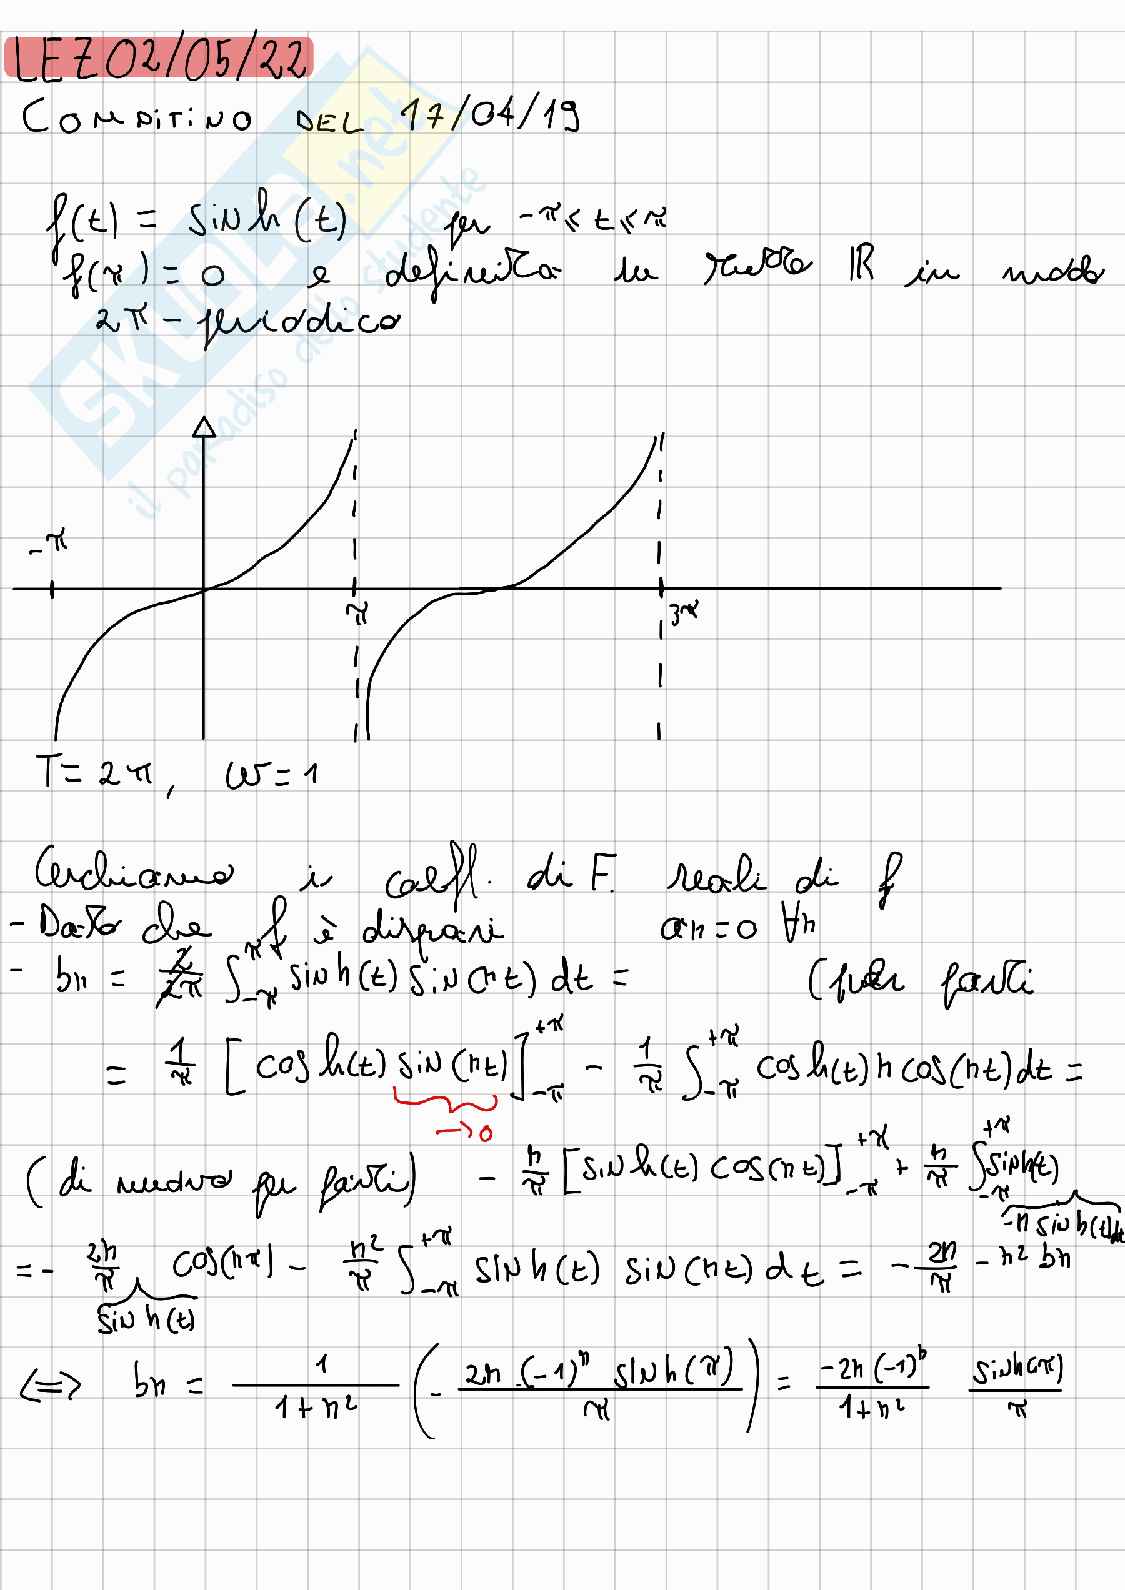 LEZ 02/05/22
COMPITINO DEL 17/04/19
f(t) = sinh(t) per -π ⩽ t ⩽ π
f(π) = 0 e definita su tutto ℝ in modo
2π - periodico
-π
π
3π
T = 2π, ω = 1
Cerchiamo i coeff. di F. reali di f
- Dato che f è dispari an = 0 ∀n
- bn = 2/2π ∫_{-π}^{π} sinh(t) sin(nt) dt = (per parti
= 1/π [cosh(t) sin(nt)]_{-π}^{+π} - 1/π ∫_{-π}^{+π} cosh(t) n cos(nt) dt =
→ 0
(di nuovo per parti) - n/π [sinh(t) cos(nt)]_{-π}^{+π} + n/π ∫_{-π}^{+π} sinh(t)
-n sinh(t)dt
= - 2n/π cos(nπ) - n²/π ∫_{-π}^{+π} sinh(t) sin(nt) dt = - 2n/π - n² bn
sinh(t)
⟺ bn = 1/(1+n²) (- 2n (-1)ⁿ sinh(π)/π) = -2n(-1)ⁿ/(1+n²) sinh(π)/π
SKUOLA.net
il paradiso dello studente